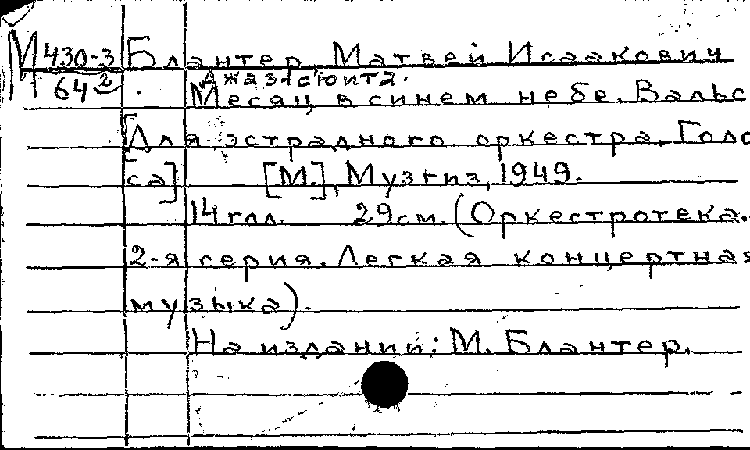 М 430-3 Блантер, Матвей Исаакович
64 Джаз-сюита.
Месяц в синем небе. Вальс
[Для эстрадного оркестра. Голо
са] [М.], Музгиз, 1949.
14 гпл. 29 см. (Оркестротека.
2-я серия. Легкая концертная
музыка).
На издании: М. Блантер.